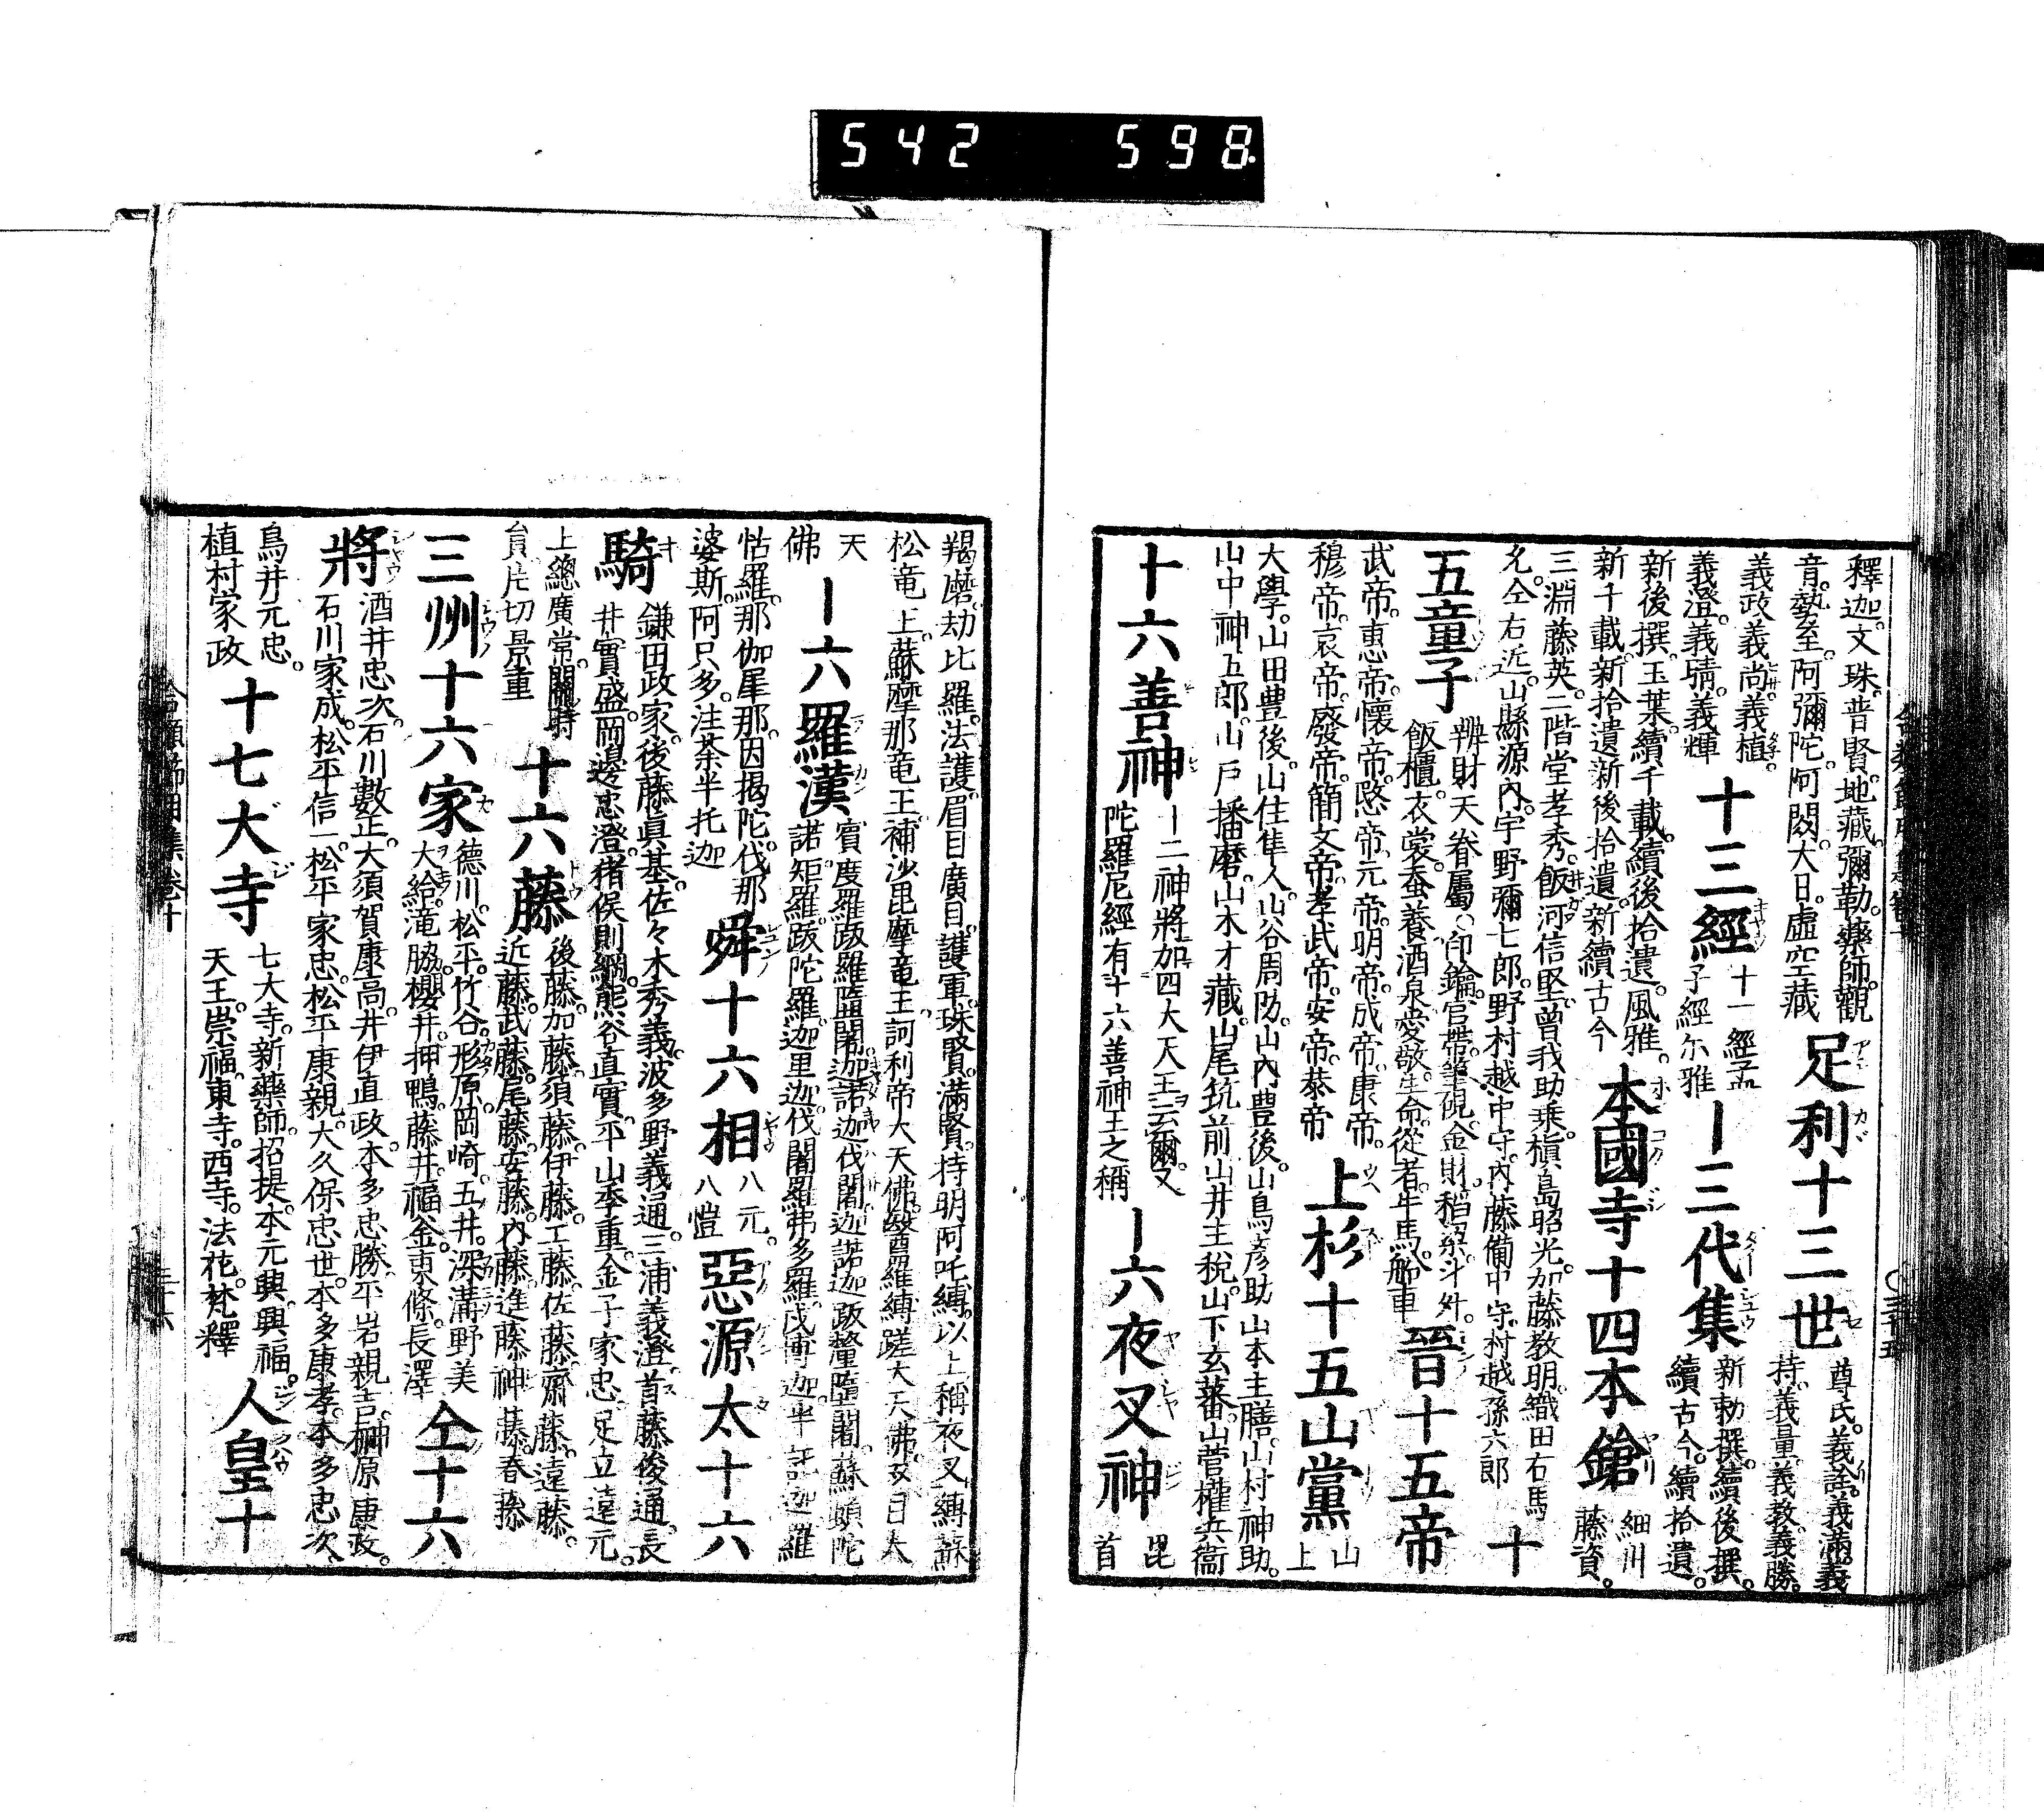 542 598.
釋迦。文珠。普賢。地藏。彌勒。藥師。觀
音。勢至。阿彌陀。阿閦。大日。虛空藏
足利十三世
尊氏。義詮。義滿。義
持。義量。義教。義勝。
義政。義尚。義植。
義澄。義晴。義輝
十三經
十一經孟
子經尓雅
十三代集
新勅撰。續後撰。
續古今。續拾遺。
新後撰。玉葉。續千載。續後拾遺。風雅。
新千載。新拾遺。新後拾遺。新續古今
本國寺十四本鎗
細川
藤資。
三淵藤英。二階堂孝秀。飯河信堅。曽我助乗。槇島昭光。加藤教明。織田右馬
允。仝右近。山縣源内。宇野彌七郎。野村越中守。内藤備中守。村越孫六郎
十
五童子
辨財天眷屬○印鑰。官帶。筆硯。金財。稻籾。斗舛。
飯櫃。衣裳。蚕養。酒泉。愛敬。生命。從者。牛馬。船車
晉十五帝
武帝。惠帝。懷帝。愍帝。元帝。明帝。成帝。康帝。
穆帝。哀帝。廢帝。簡文帝。孝武帝。安帝。恭帝
上杉十五山黨
山
上
大學。山田豊後。山住隼人。山谷周防。山内豊後。山鳥彦助。山本主膳。山村神助。
山中神五郎。山戸播磨。山木才藏。山尾筑前。山井主稅。山下玄蕃。山菅權兵衞
十六善神
十二神將加四大天王云爾。又
陀羅尼經有十六善神王之稱
十六夜叉神
毘
首
羯磨。劫比羅。法護。眉目。廣目。護軍。珠賢。滿賢。持明。阿吒縛。以上稱夜叉縛蘇
松竜上。蘇摩那竜王。補沙毘摩竜王。訶利帝大天佛。翳羅縛蹉大天佛。双目大
天
佛
十六羅漢
賓度羅跋羅墮闍。迦諾迦伐闍。迦諾迦跋釐墮闍。蘇頻陀
諾矩羅。跋陀羅。迦里迦。伐闍羅弗多羅。戌博迦。半託迦。羅
怙羅。那伽犀那。因揭陀。伐那
婆斯。阿只多。注茶半托迦
舜十六相
八元。
八愷
惡源太十六
騎
鎌田政家。後藤眞基。佐々木秀義。波多野義通。三浦義澄。首藤俊通。長
井實盛。岡邊忠澄。猪俣則綱。熊谷直實。平山季重。金子家忠。足立遠元。
上總廣常。關時
員。片切景重
十六藤
後藤。加藤。須藤。伊藤。工藤。佐藤。齋藤。遠藤。
近藤。武藤。尾藤。安藤。内藤。進藤。神藤。春藤
三州十六家
德川。松平。竹谷。形原。岡崎。五井。深溝。野美
大給。滝脇。櫻井。押鴨。藤井。福金。東條。長澤
仝十六
將
酒井忠次。石川數正。大須賀康高。井伊直政。本多忠勝。平岩親吉。榊原康政。
石川家成。松平信一。松平家忠。松平康親。大久保忠世。本多康孝。本多忠次。
鳥井元忠。
植村家政
十七大寺
七大寺。新藥師。招提。本元興。興福。
天王。崇福。東寺。西寺。法花。梵釋
人皇十